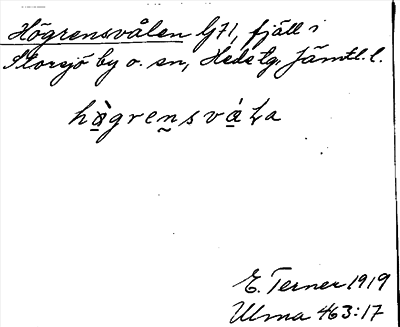 Högrensvålen G71, fjäll i
Storsjö by o. sn, Hede tg, Jämtl. l.
hògrensváLa
E. Terner 1919
Ulma 463:17